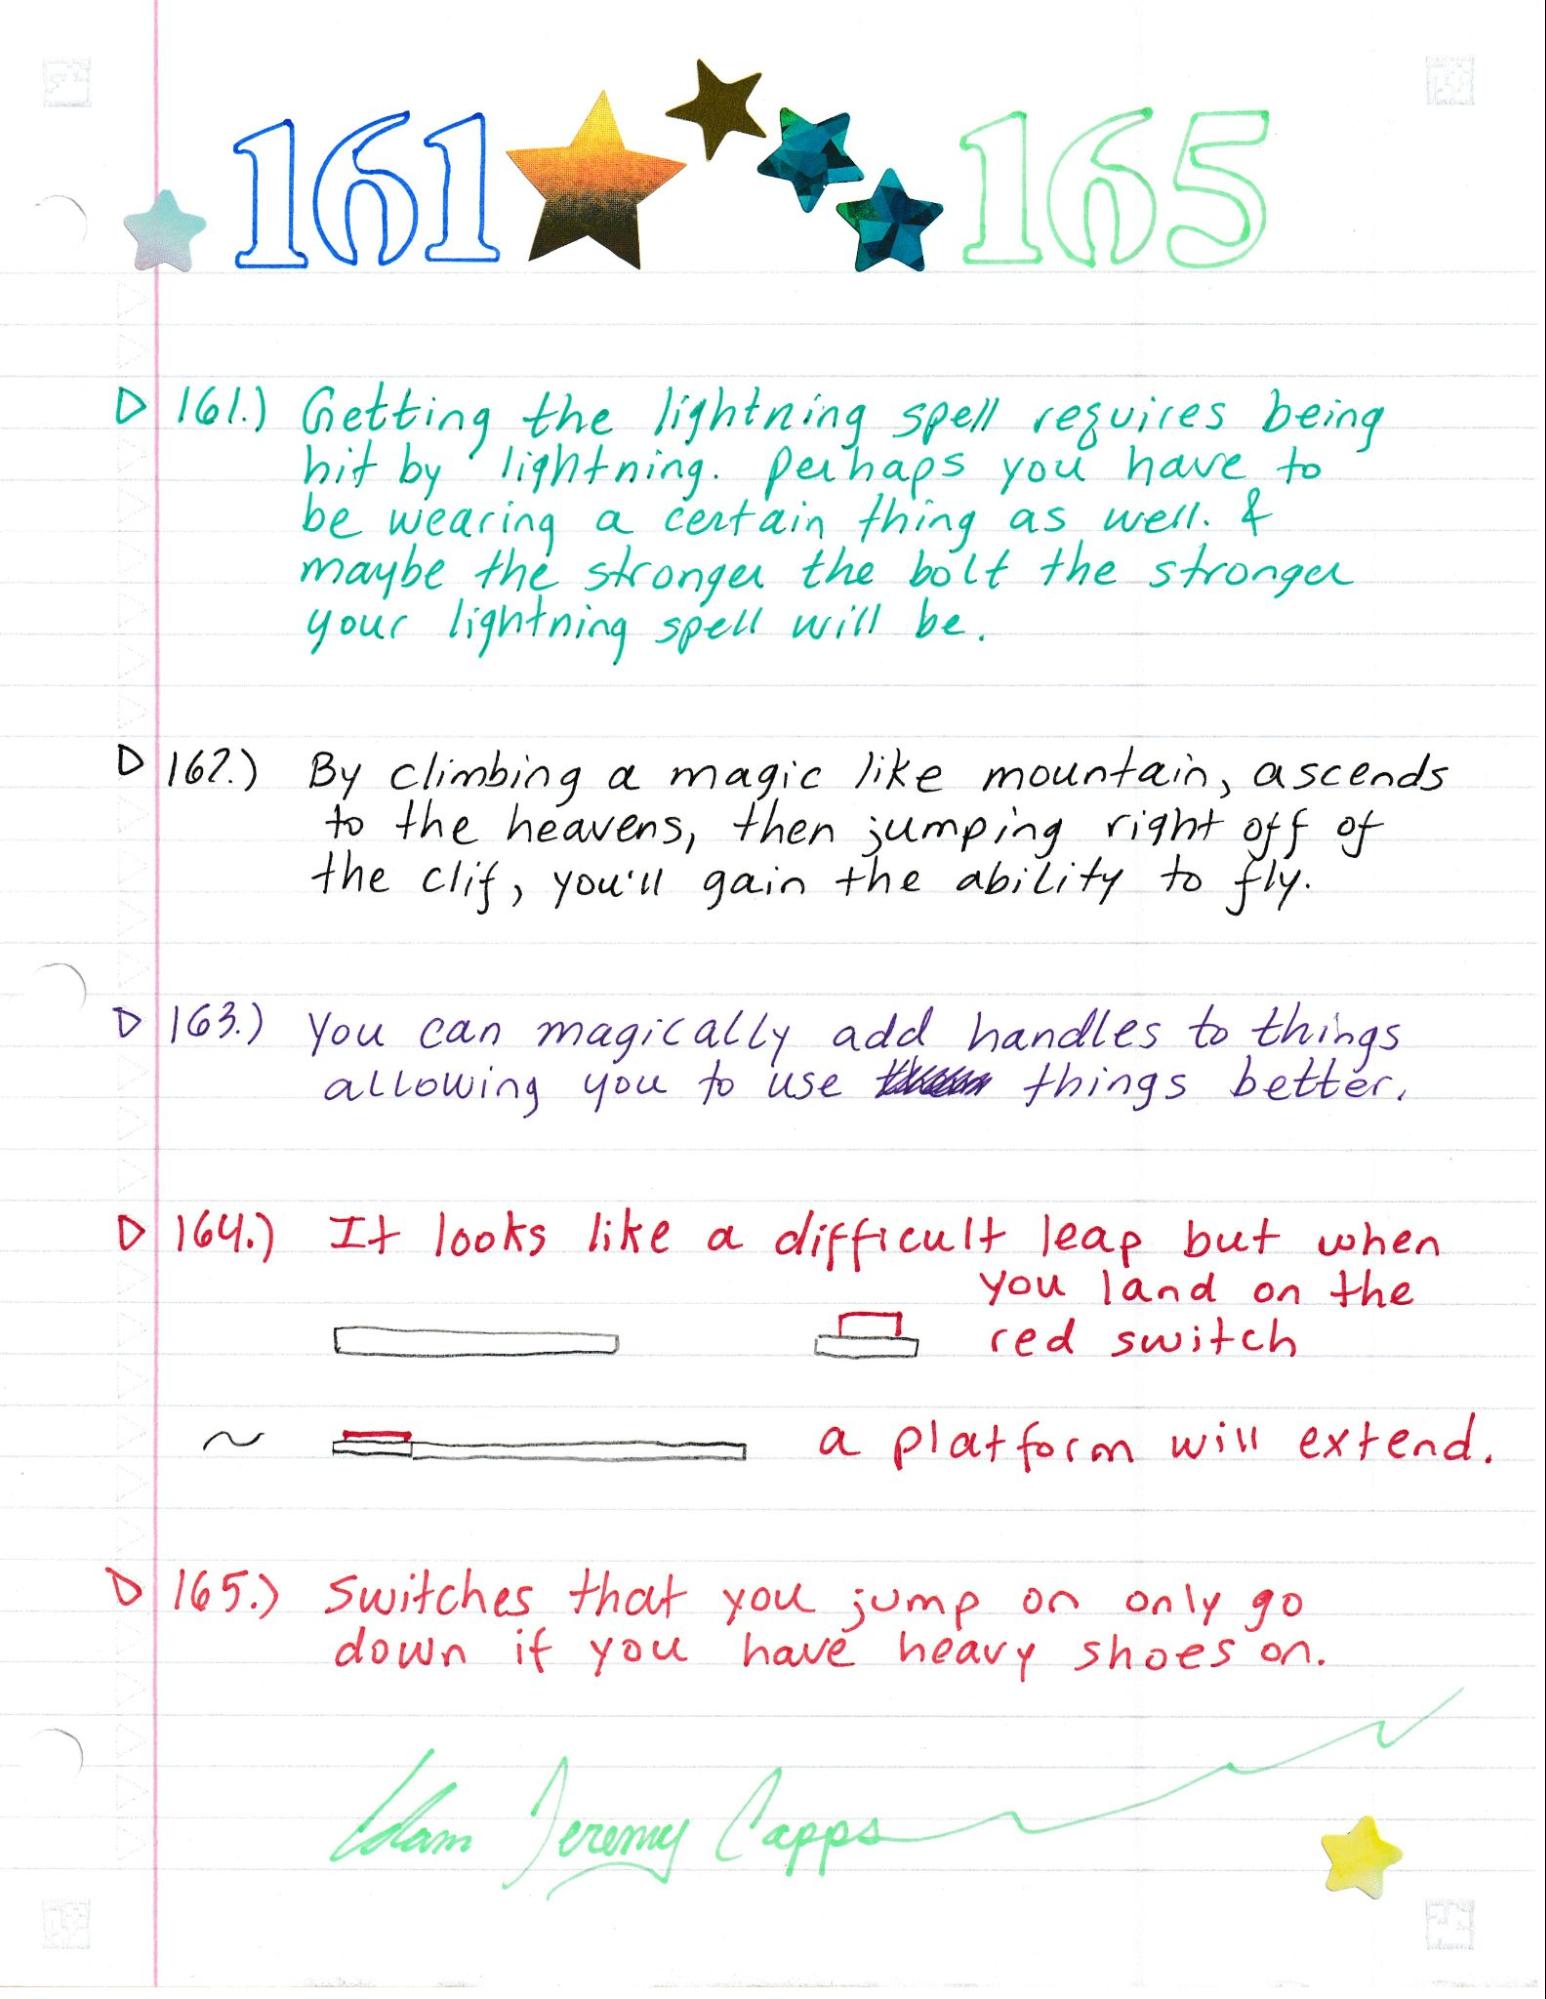 161 165
▷ 161.) Getting the lightning spell requires being
hit by lightning. Perhaps you have to
be wearing a certain thing as well. &
maybe the stronger the bolt the stronger
your lightning spell will be.
▷ 162.) By climbing a magic like mountain, ascends
to the heavens, then jumping right off of
the clif, you'll gain the ability to fly.
▷ 163.) You can magically add handles to things
allowing you to use things better.
▷ 164.) It looks like a difficult leap but when
you land on the
red switch
~ a platform will extend.
▷ 165.) Switches that you jump on only go
down if you have heavy shoes on.
Adam Jeremy Capps